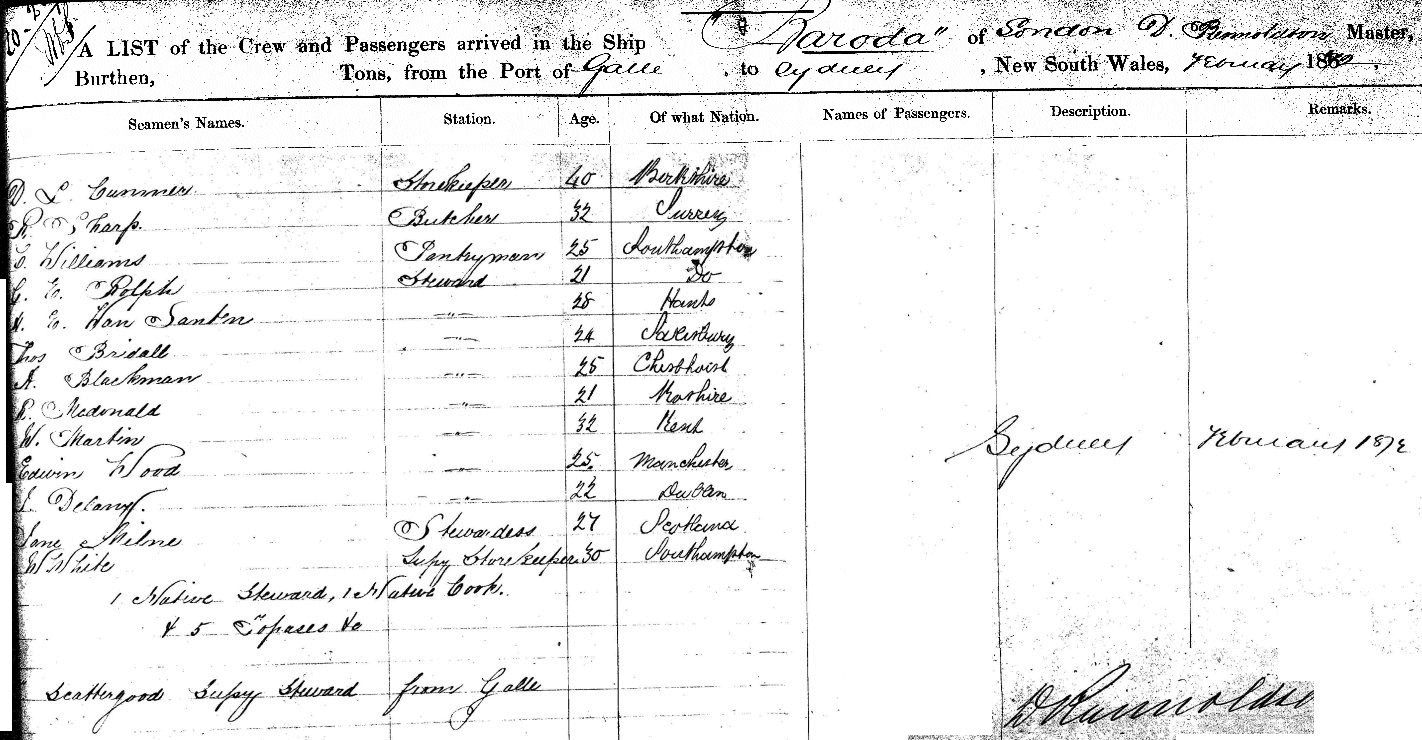 A LIST of the Crew and Passengers arrived in the Ship "Baroda" of London D. Rennoldson Master,
Burthen, Tons, from the Port of Galle to Sydney, New South Wales, February 187
Seamen's Names. Station. Age. Of what Nation. Names of Passengers. Description. Remarks.
D. L. Storekeeper 40 Berkshire
R. Sharp. Butcher 32 Surrey
C. Williams Pantryman 25 Southampton
G. E. Rolph Steward 21 Do
E. Van Santen -"- 28 Hants
Thos Bridall -"- 24 Salisbury
A. Blackman -"- 25
R. Mcdonald -"- 21
W. Martin -"- 32 Kent
Sydney February 1872
Edwin Wood -"- 25 Manchester
Delany. -"- 22 Dublin
Jane Milne Stewardess 27 Scotland
W White Supy Storekeeper 30 Southampton
1 Native Steward, 1 Native Cook.
& 5 Topases
Scattergood Supy Steward from Galle
D Rennoldson